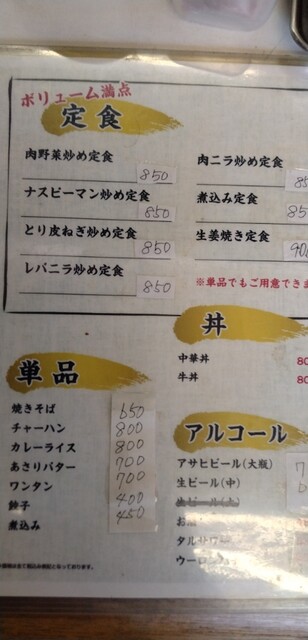 ボリューム満点
定食
肉野菜炒め定食 850
ナスピーマン炒め定食 850
とり皮ねぎ炒め定食 850
レバニラ炒め定食 850
肉ニラ炒め定食 85
煮込み定食 85
生姜焼き定食 90
※単品でもご用意できま
丼
中華丼 80
牛丼 80
単品
焼きそば 650
チャーハン 800
カレーライス 800
あさりバター 700
ワンタン 700
餃子 400
煮込み 450
アルコール
アサヒビール(大瓶) 7
生ビール(中)
生ビール(大)
お
タルサワー
ウーロン